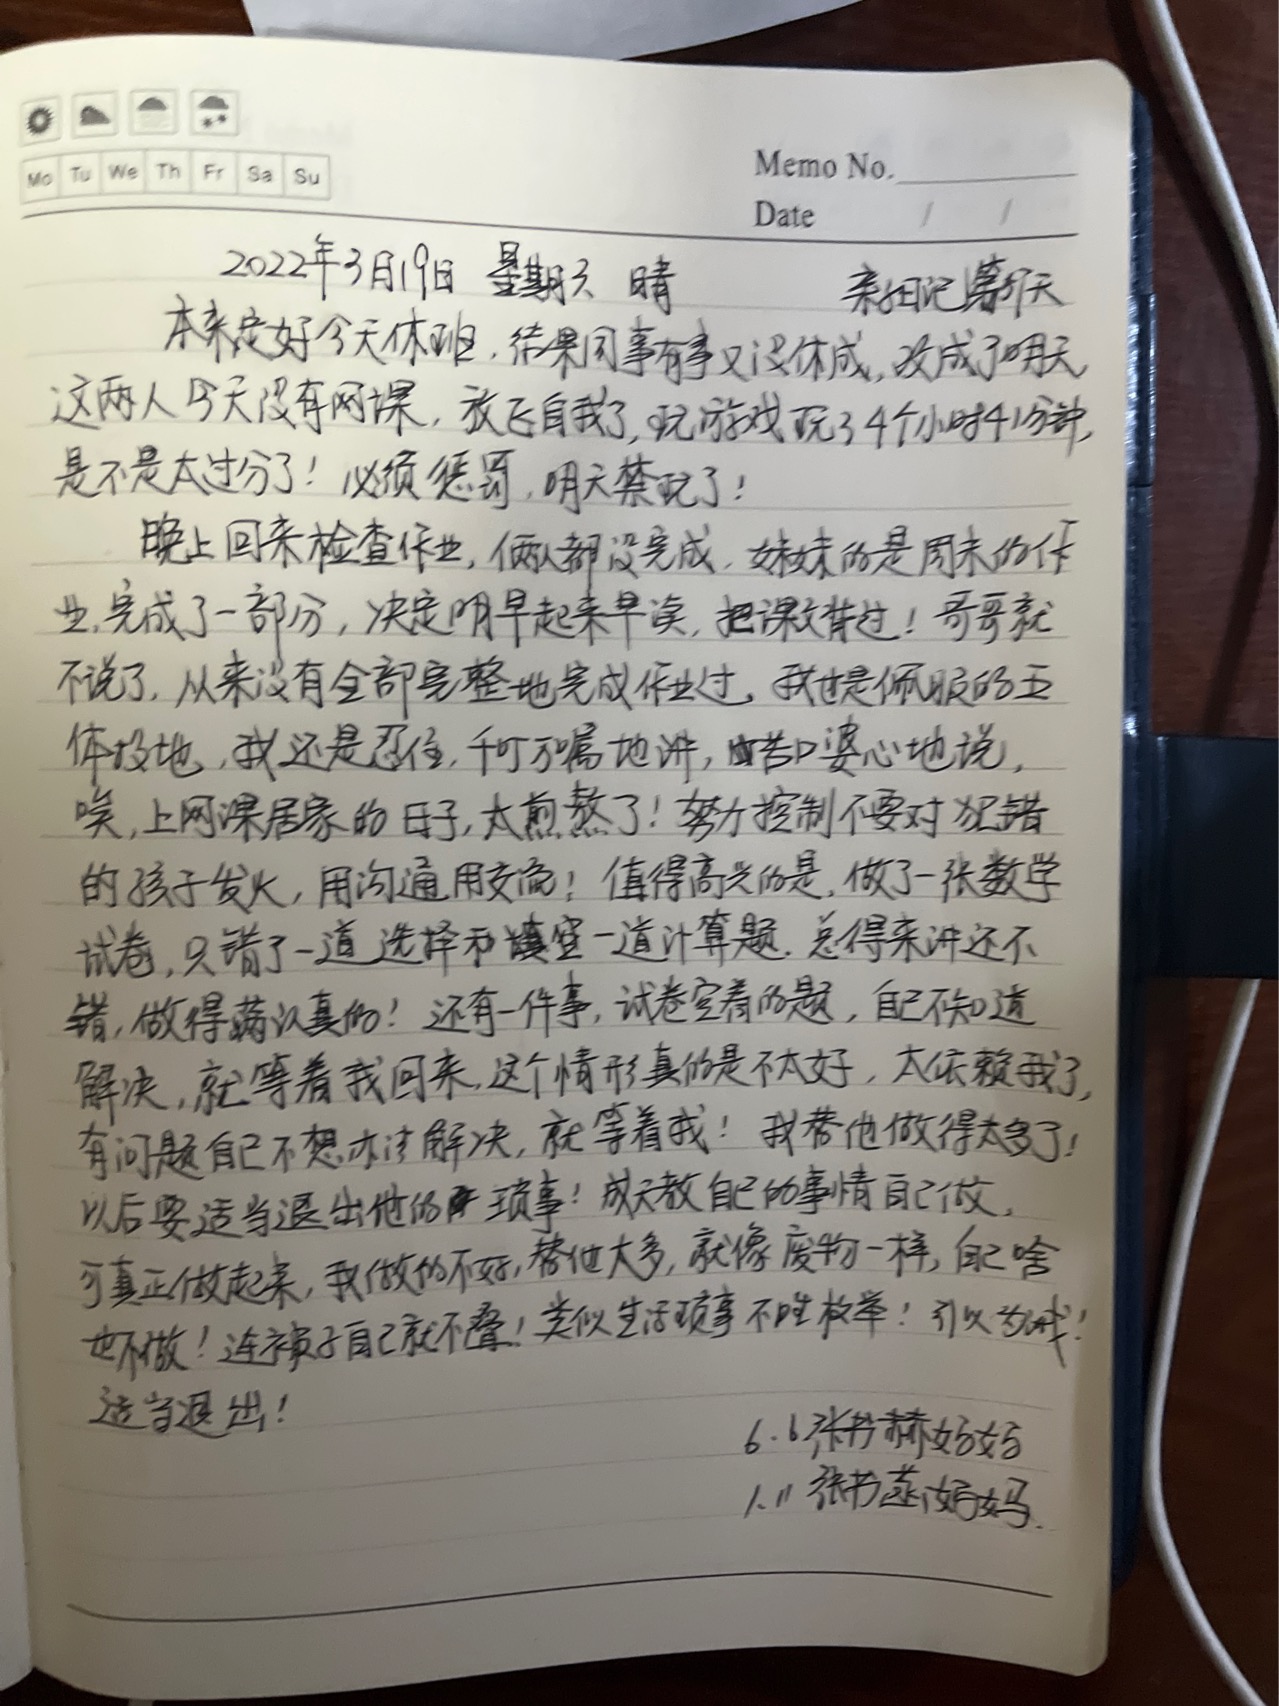 Mo Tu We Th Fr Sa Su
Memo No.
Date / /
2022年3月19日 星期天 晴 亲子日记第 天
本来定好今天休班,结果同事有事又没休成,改成了明天,
这两人今天没有网课,放飞自我了,玩游戏玩了4个小时41分钟,
是不是太过分了!必须惩罚,明天禁玩了!
晚上回来检查作业,俩人都没完成,妹妹的是周末的作
业,完成了一部分,决定明早起来早读,把课文背过!哥哥就
不说了,从来没有全部完整地完成作业过,我也是佩服的五
体投地,我还是忍住,千叮万嘱地讲,苦口婆心地说,
唉,上网课居家的日子,太煎熬了!努力控制不要对犯错
的孩子发火,用沟通,用交流!值得高兴的是,做了一张数学
试卷,只错了一道选择和填空一道计算题.总得来讲还不
错,做得蛮认真的!还有一件事,试卷空着的题,自己不知道
解决,就等着我回来,这个情形真的是不太好,太依赖我了,
有问题自己不想办法解决,就等着我!我替他做得太多了!
以后要适当退出他的 琐事!成天教自己的事情自己做,
可真正做起来,我做的不好,替他太多,就像废物一样,自己啥
也不做!连被子自己就不叠!类似生活琐事不胜枚举!引以为戒!
适当退出!
6.6张书赫妈妈
1.11张书 妈妈.